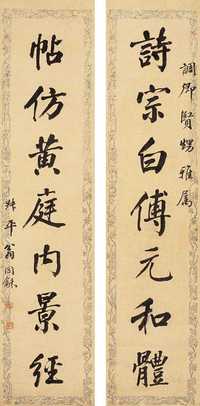 調卿賢甥雅属
詩宗白傅元和體
帖仿黄庭内景經
叔平翁同龢